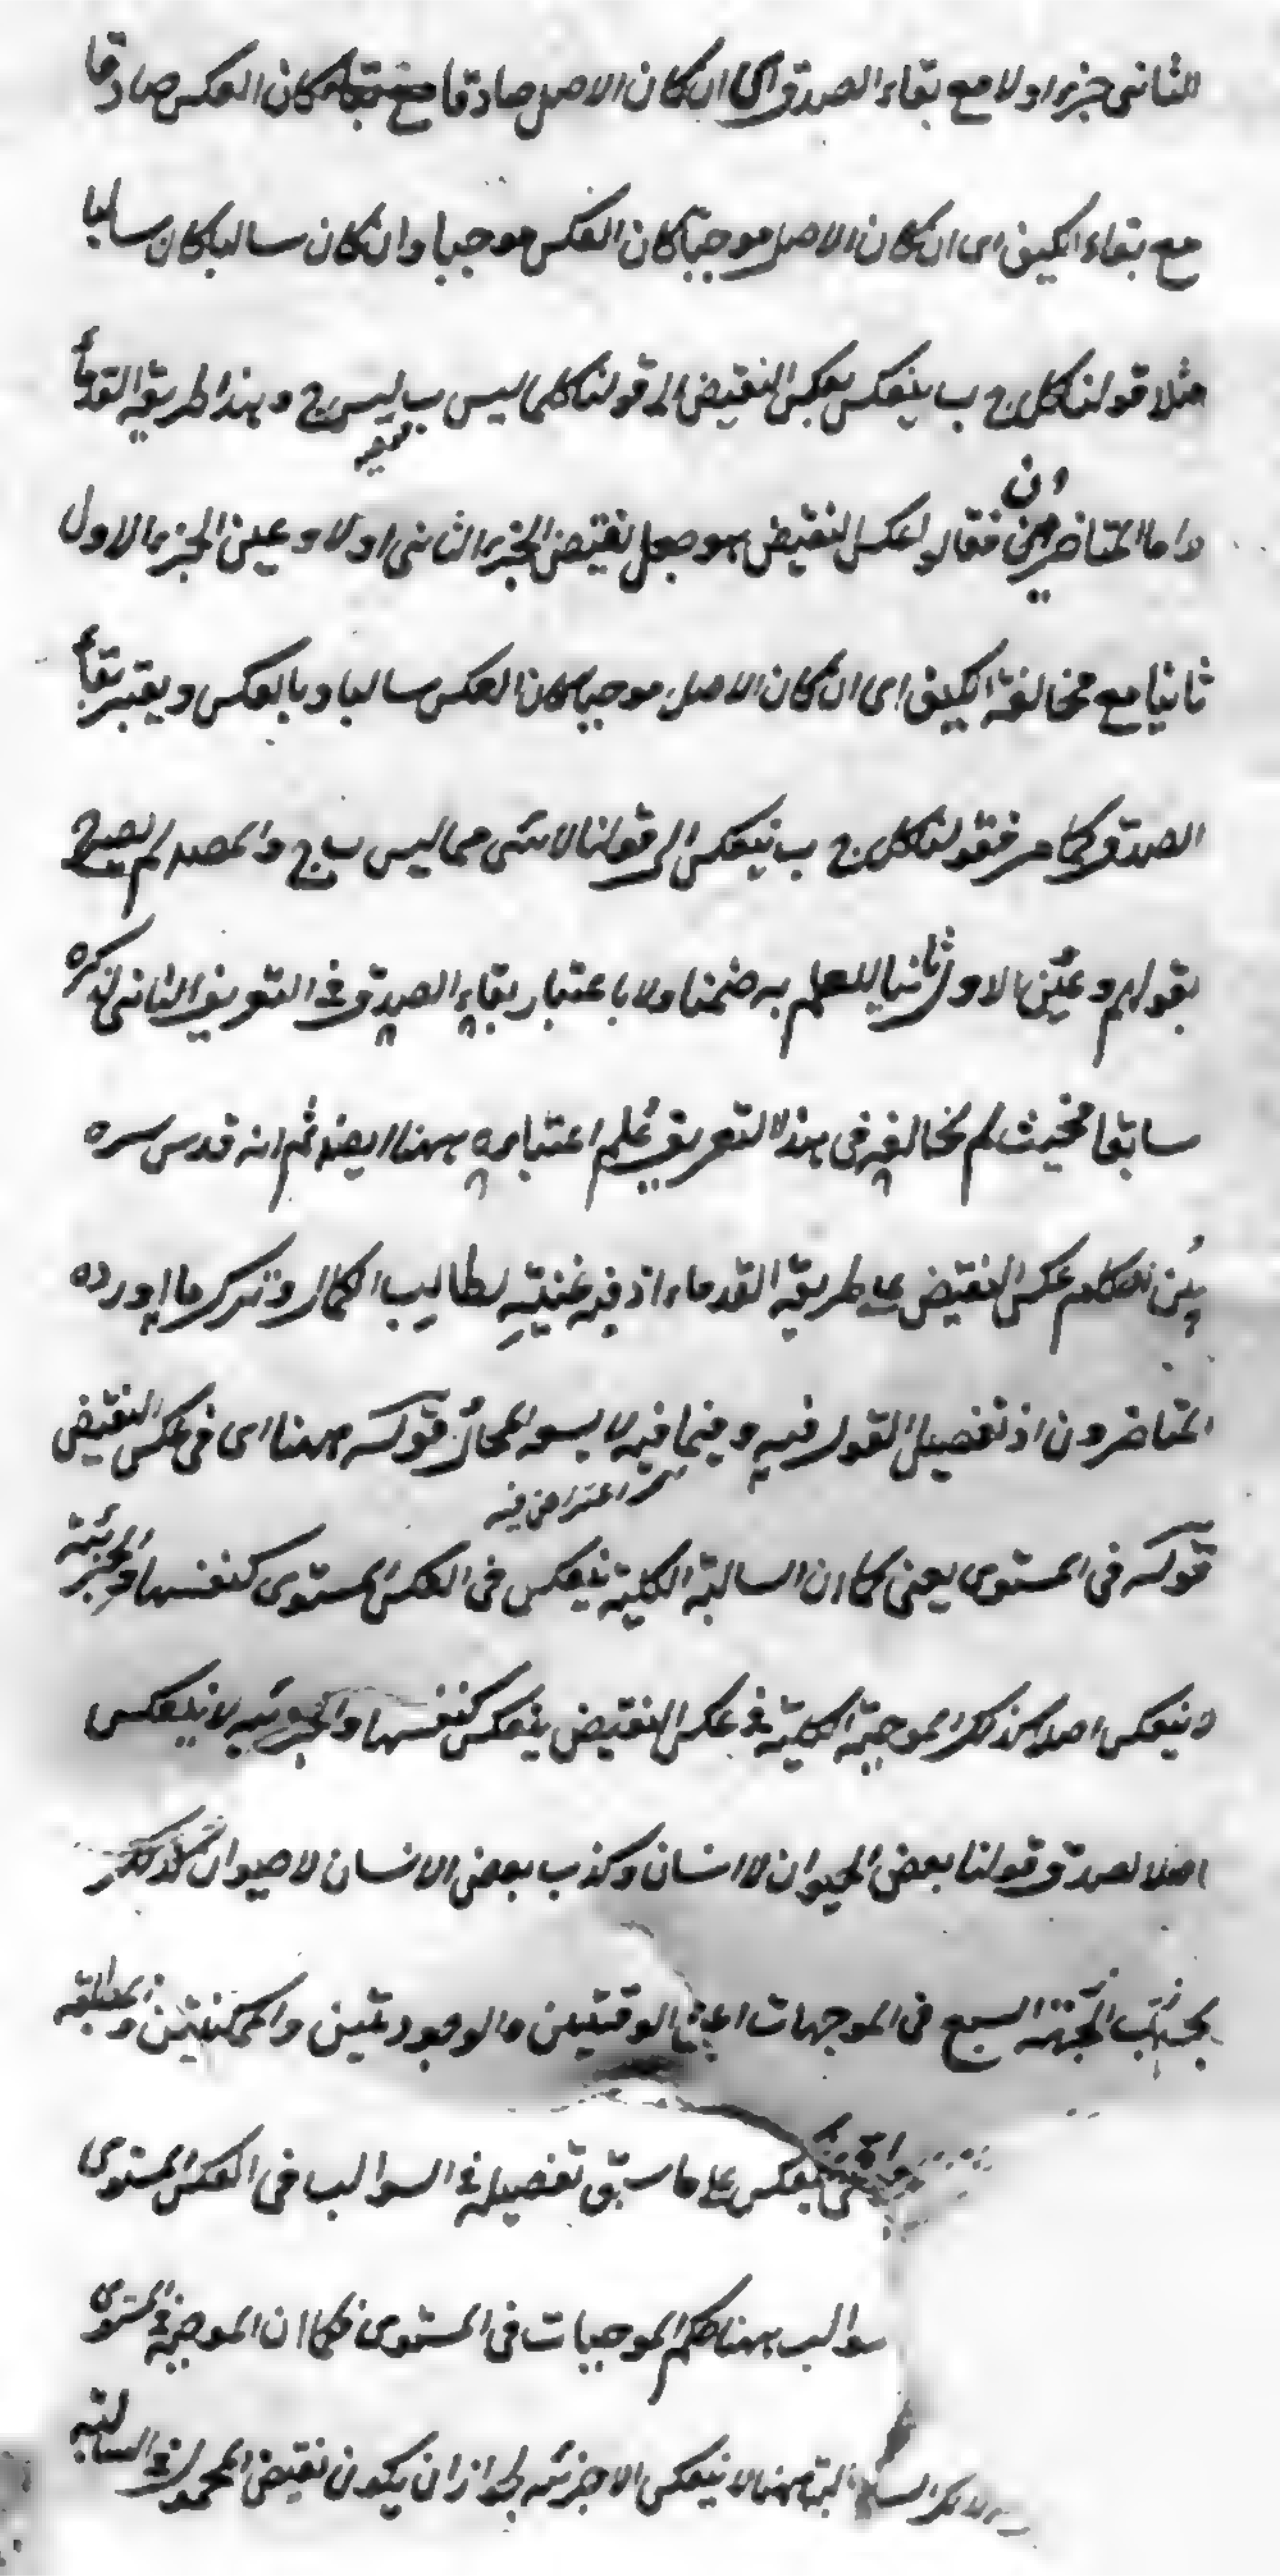 الثانى جزء اولا مع بقاء الصدق اى ان كان الاصل صادقا كان العكس صادقا
مع بقاء الكيف اى ان كان الاصل موجبا كان العكس موجبا وان كان سالبا كان سالبا
مثلا قولنا كل ج ب ينعكس بعكس النقيض الى قولنا كلما ليس ب ليس ج وهذا طريقة القدماء
واما المتاخرين فقالوا ان عكس النقيض هو جعل نقيض الجزء الثانى اولا وعين الجزء الاول
ثانيا مع مخالفة الكيف اى ان كان الاصل موجبا كان العكس سالبا وبالعكس ويعتبر بقاء
الصدق كما مر فقولنا كل ج ب ينعكس الى قولنا لا شئ مما ليس ب ج والمصه لم يصرح
بقولهم وعين الاول ثانيا للعلم به ضمنا ولا باعتبار بقاء الصدق فى التعريف الثانى لذكره
سابقا فحيث لم يخالفه فى هذا التعريف علم اعتباره ههنا ايضا ثم انه قدس سره
بين احكام عكس النقيض على طريقة القدماء اذ فيه غنية لطالب الكمال وترك ما اورده
المتاخرون اذ تفصيل القول فيه وفيما فيه لا يسعه المجال قوله ههنا اى فى عكس النقيض
اعتراض فيه
قوله فى المستوى يعنى كما ان السالبة الكلية ينعكس فى العكس المستوى كنفسها والجزئية
لا ينعكس اصلا كذلك الموجبة الكلية فى عكس النقيض ينعكس كنفسها والجزئية لا ينعكس
اصلا لصدق قولنا بعض الحيوان لا انسان وكذب بعض الانسان لا حيوان كذلك
بحسب الجهة السبع فى الموجهات اعنى الوقتيتين والوجوديتين والممكنتين والمطلقة
ينعكس على ما سبق تفصيله فى السوالب فى العكس المستوى
سوالب ههنا حكم الموجبات فى المستوى فكما ان الموجبة فى المستوى
ههنا لا ينعكس الا جزئيه لجواز ان يكون نقيض المحمول فى السالبة